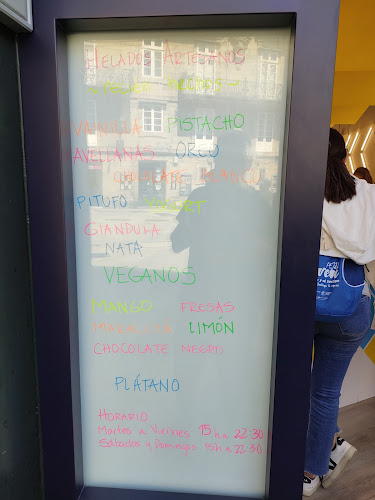 HELADOS ARTESANOS
VAINILLA PISTACHO
AVELLANAS OREO
CHOCOLATE BLANCO
PITUFO YOGURT
GIANDULA
NATA
VEGANOS
MANGO FRESAS
LIMÓN
CHOCOLATE NEGRO
PLÁTANO
HORARIO
Martes a Viernes 15h a 22:30
Sábados y Domingos 15h a 22:30